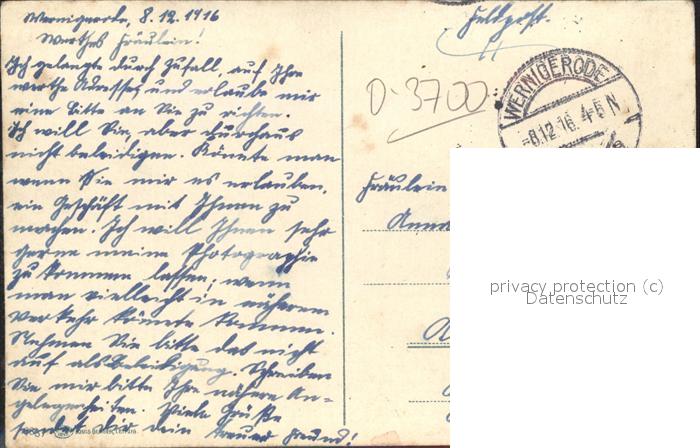 Wernigerode, 8.12.1916
Werthes Fräulein!
Ich gelangte durch Zufall, auf Ihre
werthe Adresse, und erlaube mir
eine bitte an Sie zu richten.
Ich will Sie, aber durchaus
nicht beleidigen. Könnte man
wenn Sie mir es erlauben,
ein Geschäft mit Ihnen zu
machen. Ich will Ihnen sehr
gerne meine Photographie
zu kommen lassen; wenn
man vielleicht in näherem
Verkehr könnte kommen.
Nehmen Sie bitte das nicht
auf als Beleidigung. Schreiben
Sie mir bitte Ihre nähere An-
gelegenheiten. Viele Grüße
sendet dir dein treuer Freund!
Feldpost.
D-3700
WERNIGERODE
-8.12.16. 4-5 N
Fräulein
Anna
privacy protection (c)
Datenschutz